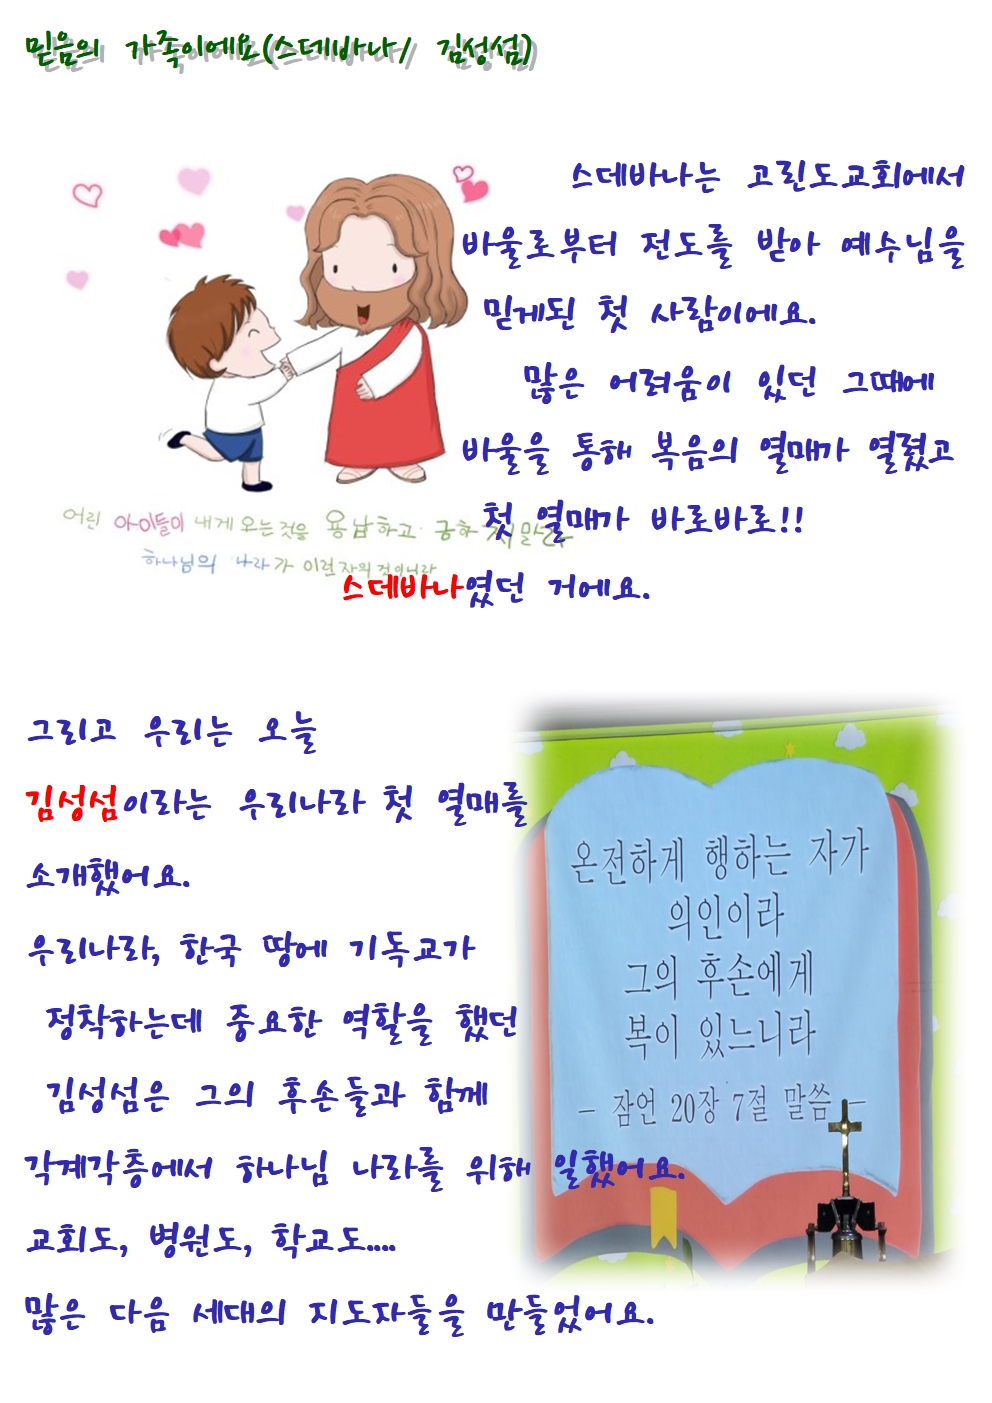 믿음의 가족이에요(스데바나/ 김성섬)
스데바나는 고린도교회에서
바울로부터 전도를 받아 예수님을
믿게된 첫 사람이에요.
많은 어려움이 있던 그때에
바울을 통해 복음의 열매가 열렸고
첫 열매가 바로바로!!
스데바나였던 거에요.
어린 아이들이 내게 오는것을 용납하고 금하지 말라
하나님의 나라가 이런자의 것이니라
그리고 우리는 오늘
김성섬이라는 우리나라 첫 열매를
소개했어요.
우리나라, 한국 땅에 기독교가
정착하는데 중요한 역할을 했던
김성섬은 그의 후손들과 함께
각계각층에서 하나님 나라를 위해 일했어요.
교회도, 병원도, 학교도....
많은 다음 세대의 지도자들을 만들었어요.
온전하게 행하는 자가
의인이라
그의 후손에게
복이 있느니라
- 잠언 20장 7절 말씀 -